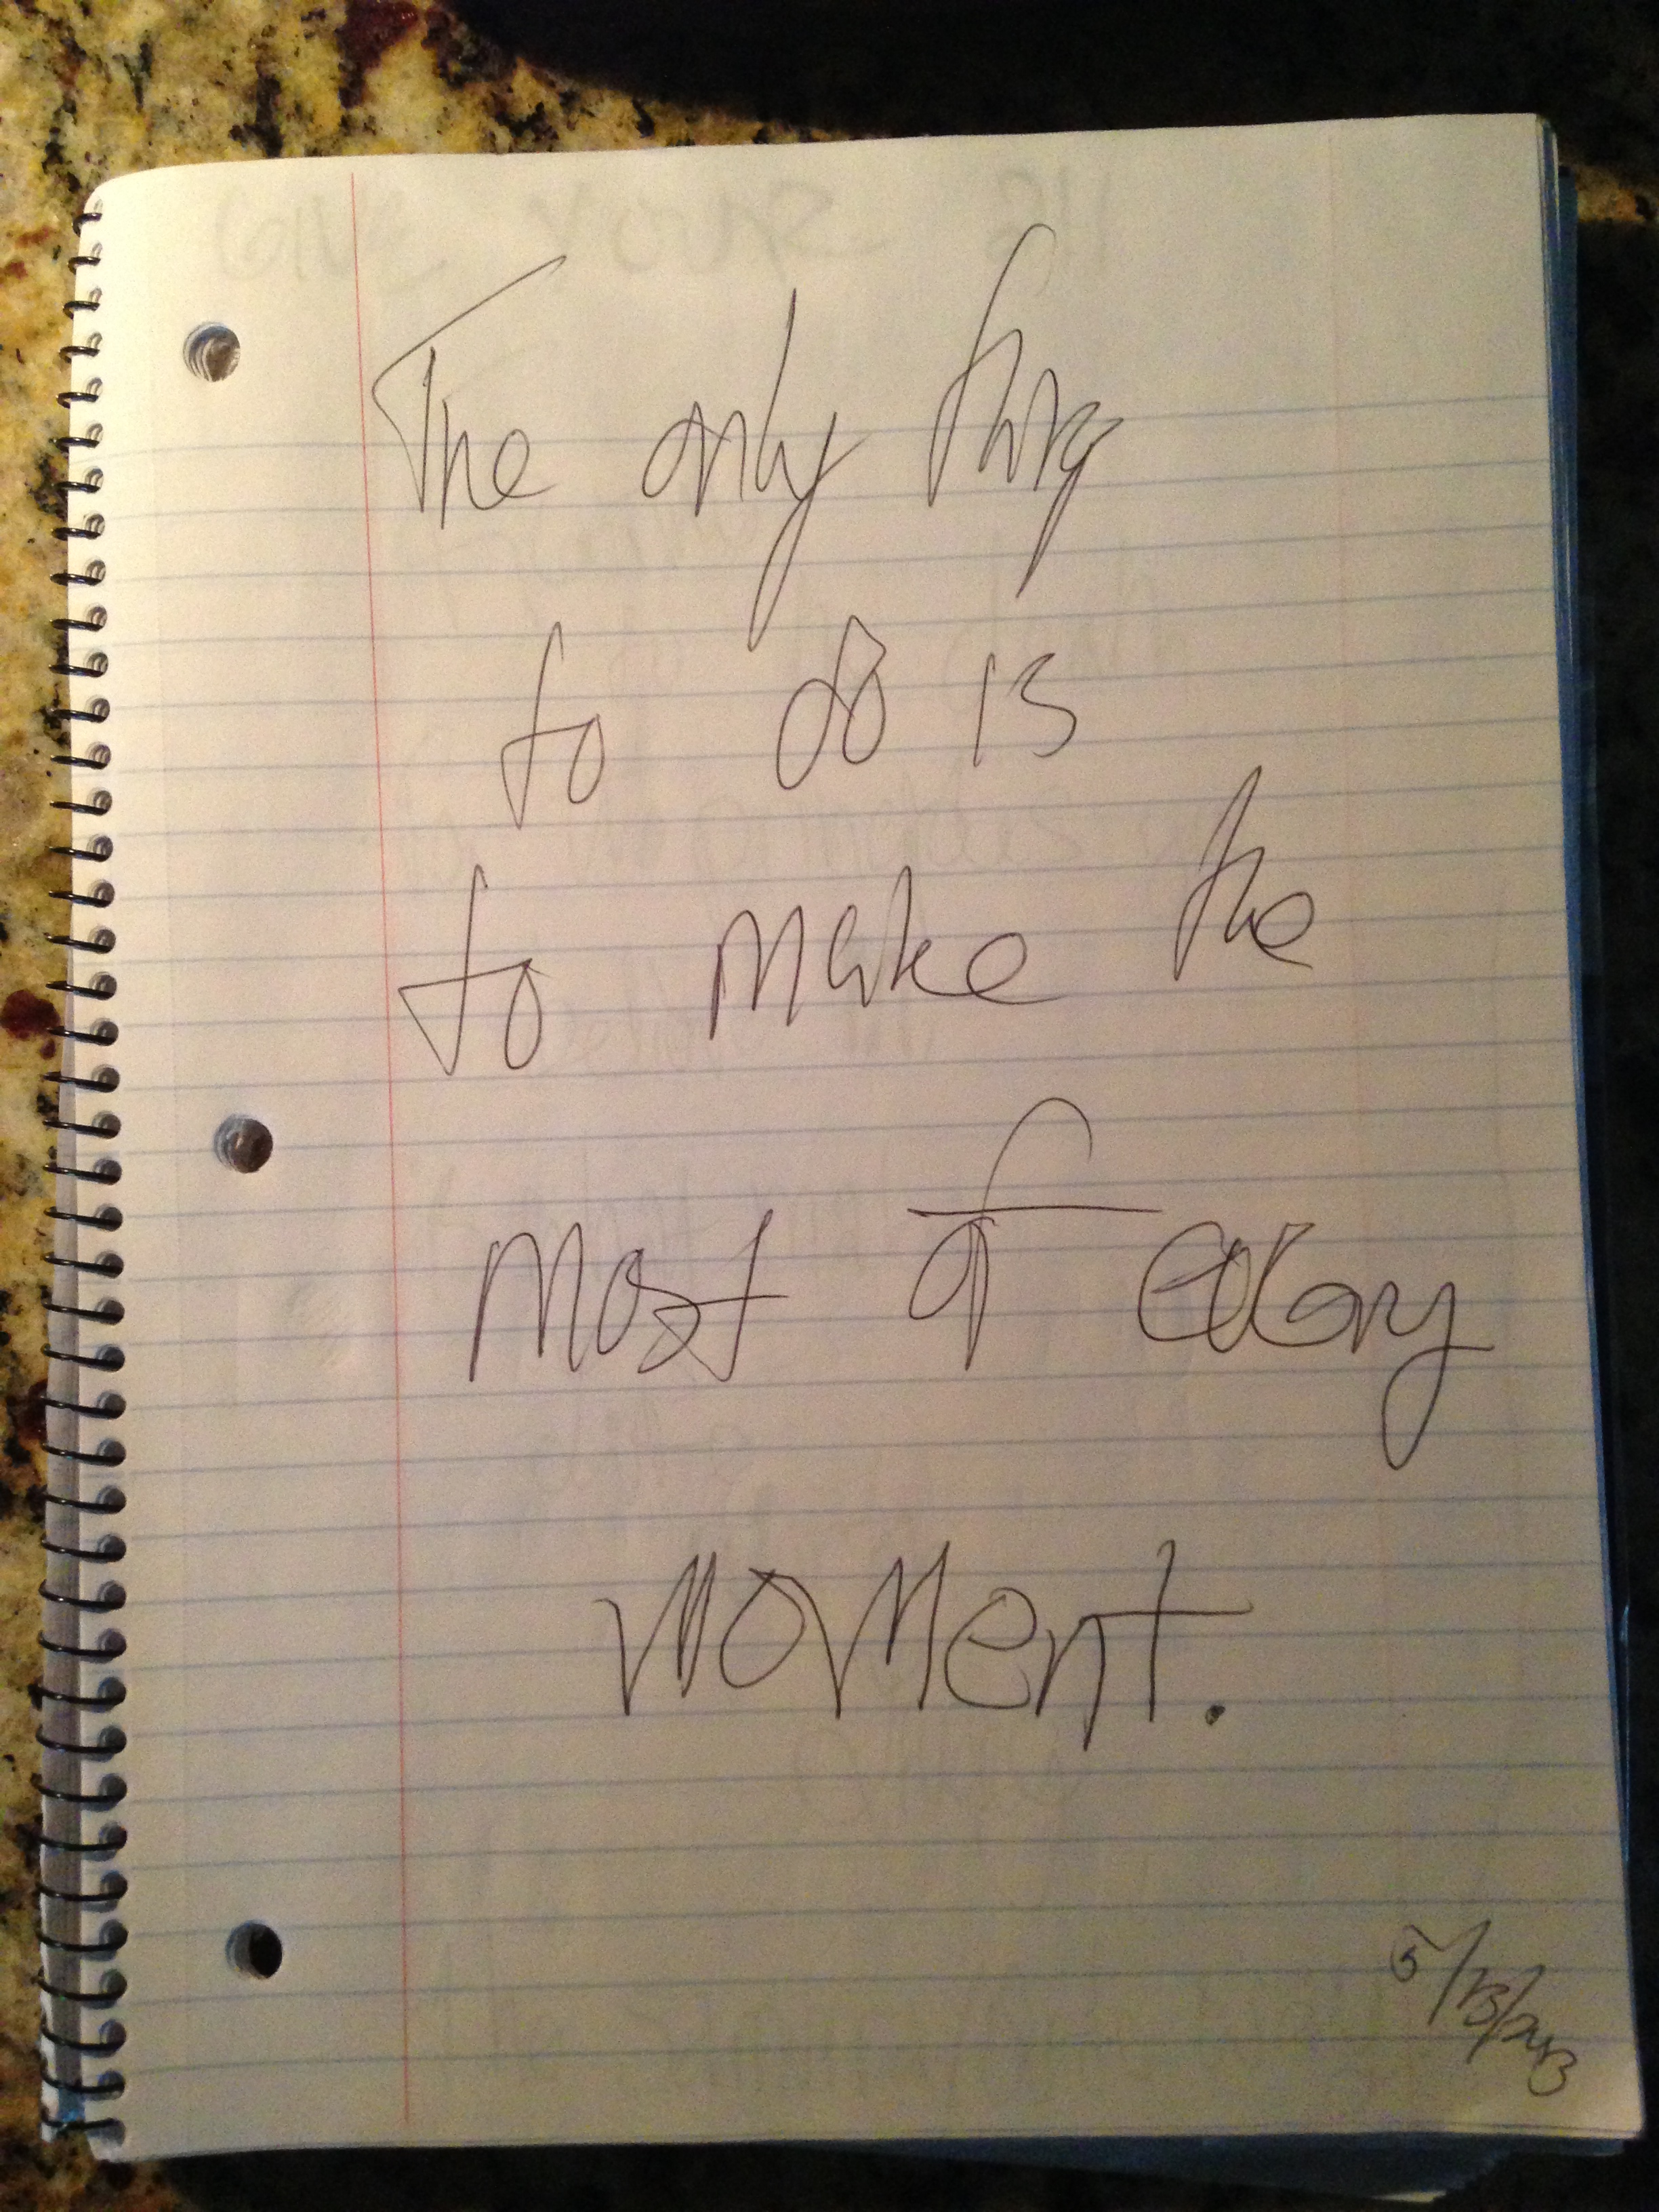 The only thing
to do is
to make the
most of every
moment.
5/13/2013